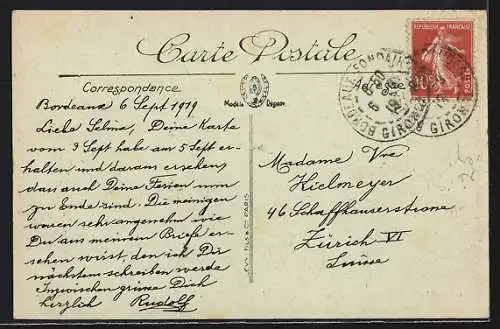 Carte Postale
REPUBLIQUE FRANÇAISE
10c
BORDEAUX
GIRONDE
Correspondance
Modèle Déposé
Bordeaux 6 Sept 1919
Liebe Selma, Deine Karte
vom 3 Sept habe am 5 Sept er-
halten und daraus ersehen
dass auch Deine Ferien nun
zu Ende sind. Die meinigen
waren sehr angenehm wie
Du aus meinem Briefe er-
sehen wirst, den ich Dir
nächstens schreiben werde
Inzwischen grüsse Dich
herzlich Rudolf
Madame Vve
Kielmeyer
46 Schaffhauserstrasse
Zürich VI
Suisse
PARIS
25